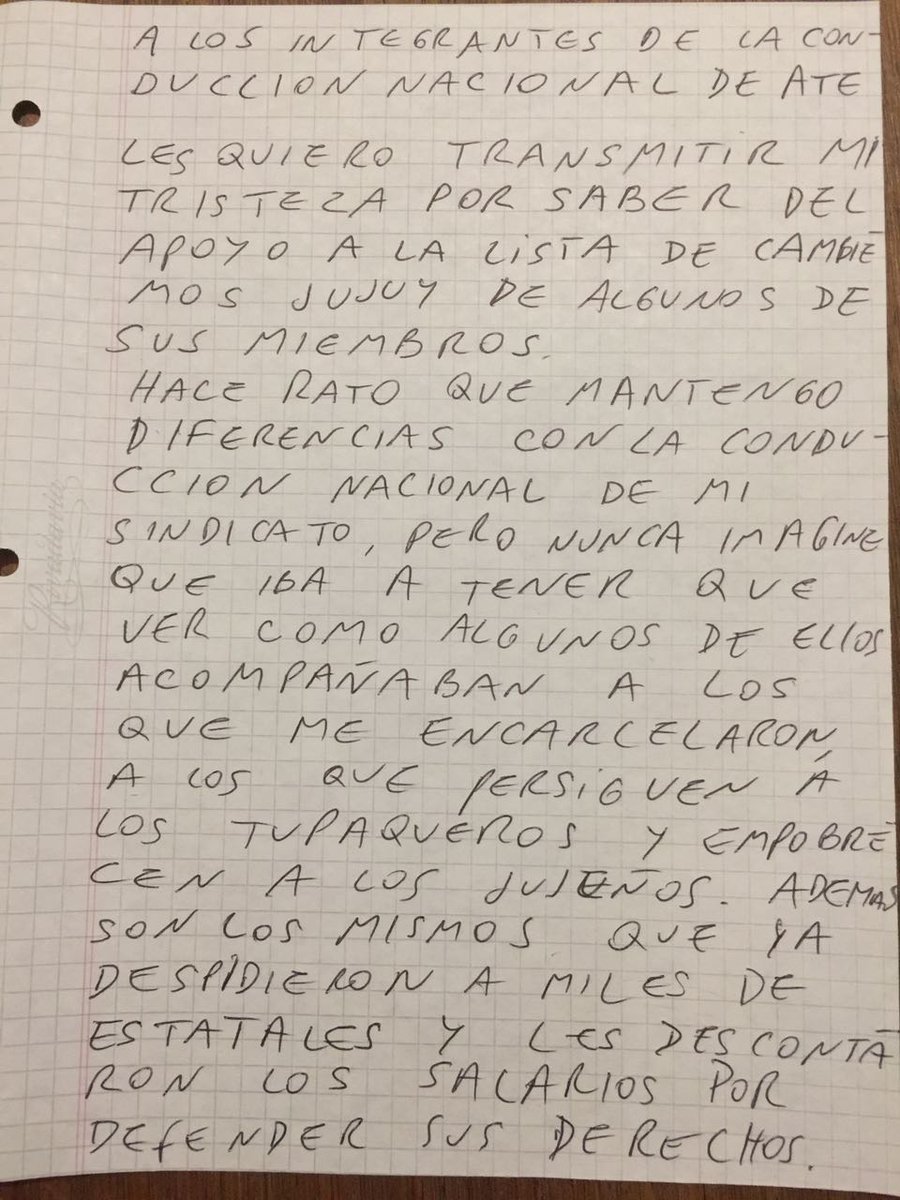 A LOS INTEGRANTES DE LA CON-
DUCCION NACIONAL DE ATE
LES QUIERO TRANSMITIR MI
TRISTEZA POR SABER DEL
APOYO A LA LISTA DE CAMBIE
MOS JUJUY DE ALGUNOS DE
SUS MIEMBROS.
HACE RATO QUE MANTENGO
DIFERENCIAS CON LA CONDU-
CCION NACIONAL DE MI
SINDICATO, PERO NUNCA IMAGINE
QUE IBA A TENER QUE
VER COMO ALGUNOS DE ELLOS
ACOMPAÑABAN A LOS
QUE ME ENCARCELARON,
A LOS QUE PERSIGUEN A
LOS TUPAQUEROS Y EMPOBRE
CEN A LOS JUJEÑOS. ADEMAS
SON LOS MISMOS QUE YA
DESPIDIERON A MILES DE
ESTATALES Y LES DESCONTA
RON LOS SALARIOS POR
DEFENDER SUS DERECHOS.
Rivadavia